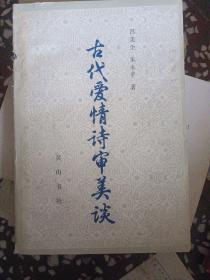 古代爱情诗审美谈
著
黄山书社